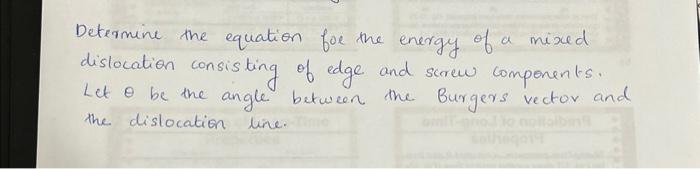 Determine the equation foe the energy of a mixed
dislocation consisting of edge and screw components.
Let θ be the angle between the Burgers vector and
the dislocation line.